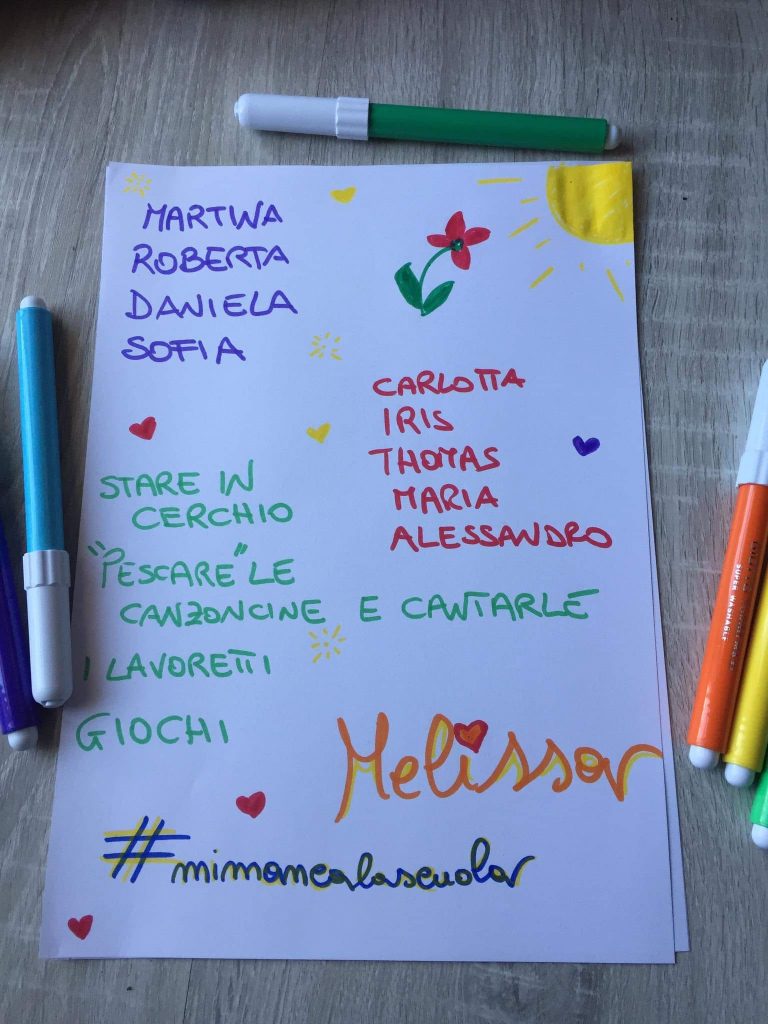 MARTINA
ROBERTA
DANIELA
SOFIA
CARLOTTA
IRIS
THOMAS
MARIA
ALESSANDRO
STARE IN
CERCHIO
"PESCARE" LE
CANZONCINE E CANTARLE
I LAVORETTI
GIOCHI
Melissa
#mimancalascuola
SUPER WASHABLE